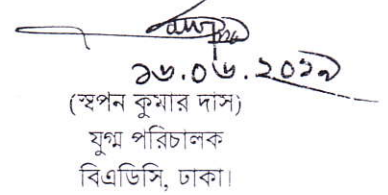 ১৬.০৬.২০১৯
(স্বপন কুমার দাস)
যুগ্ম পরিচালক
বিএডিসি, ঢাকা।